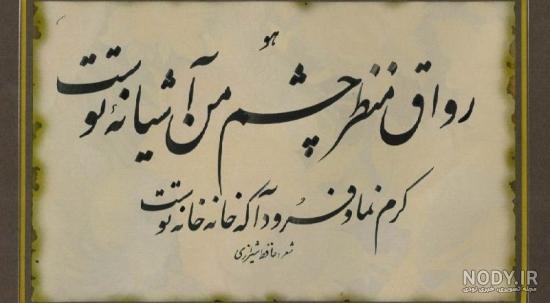 هو
رواق منظر چشم من آشیانهٔ توست
کرم نما و فرود آ که خانه خانه توست
شعر: حافظ شیرازی
NODY.IR
مجله تصویری، خبری نودی